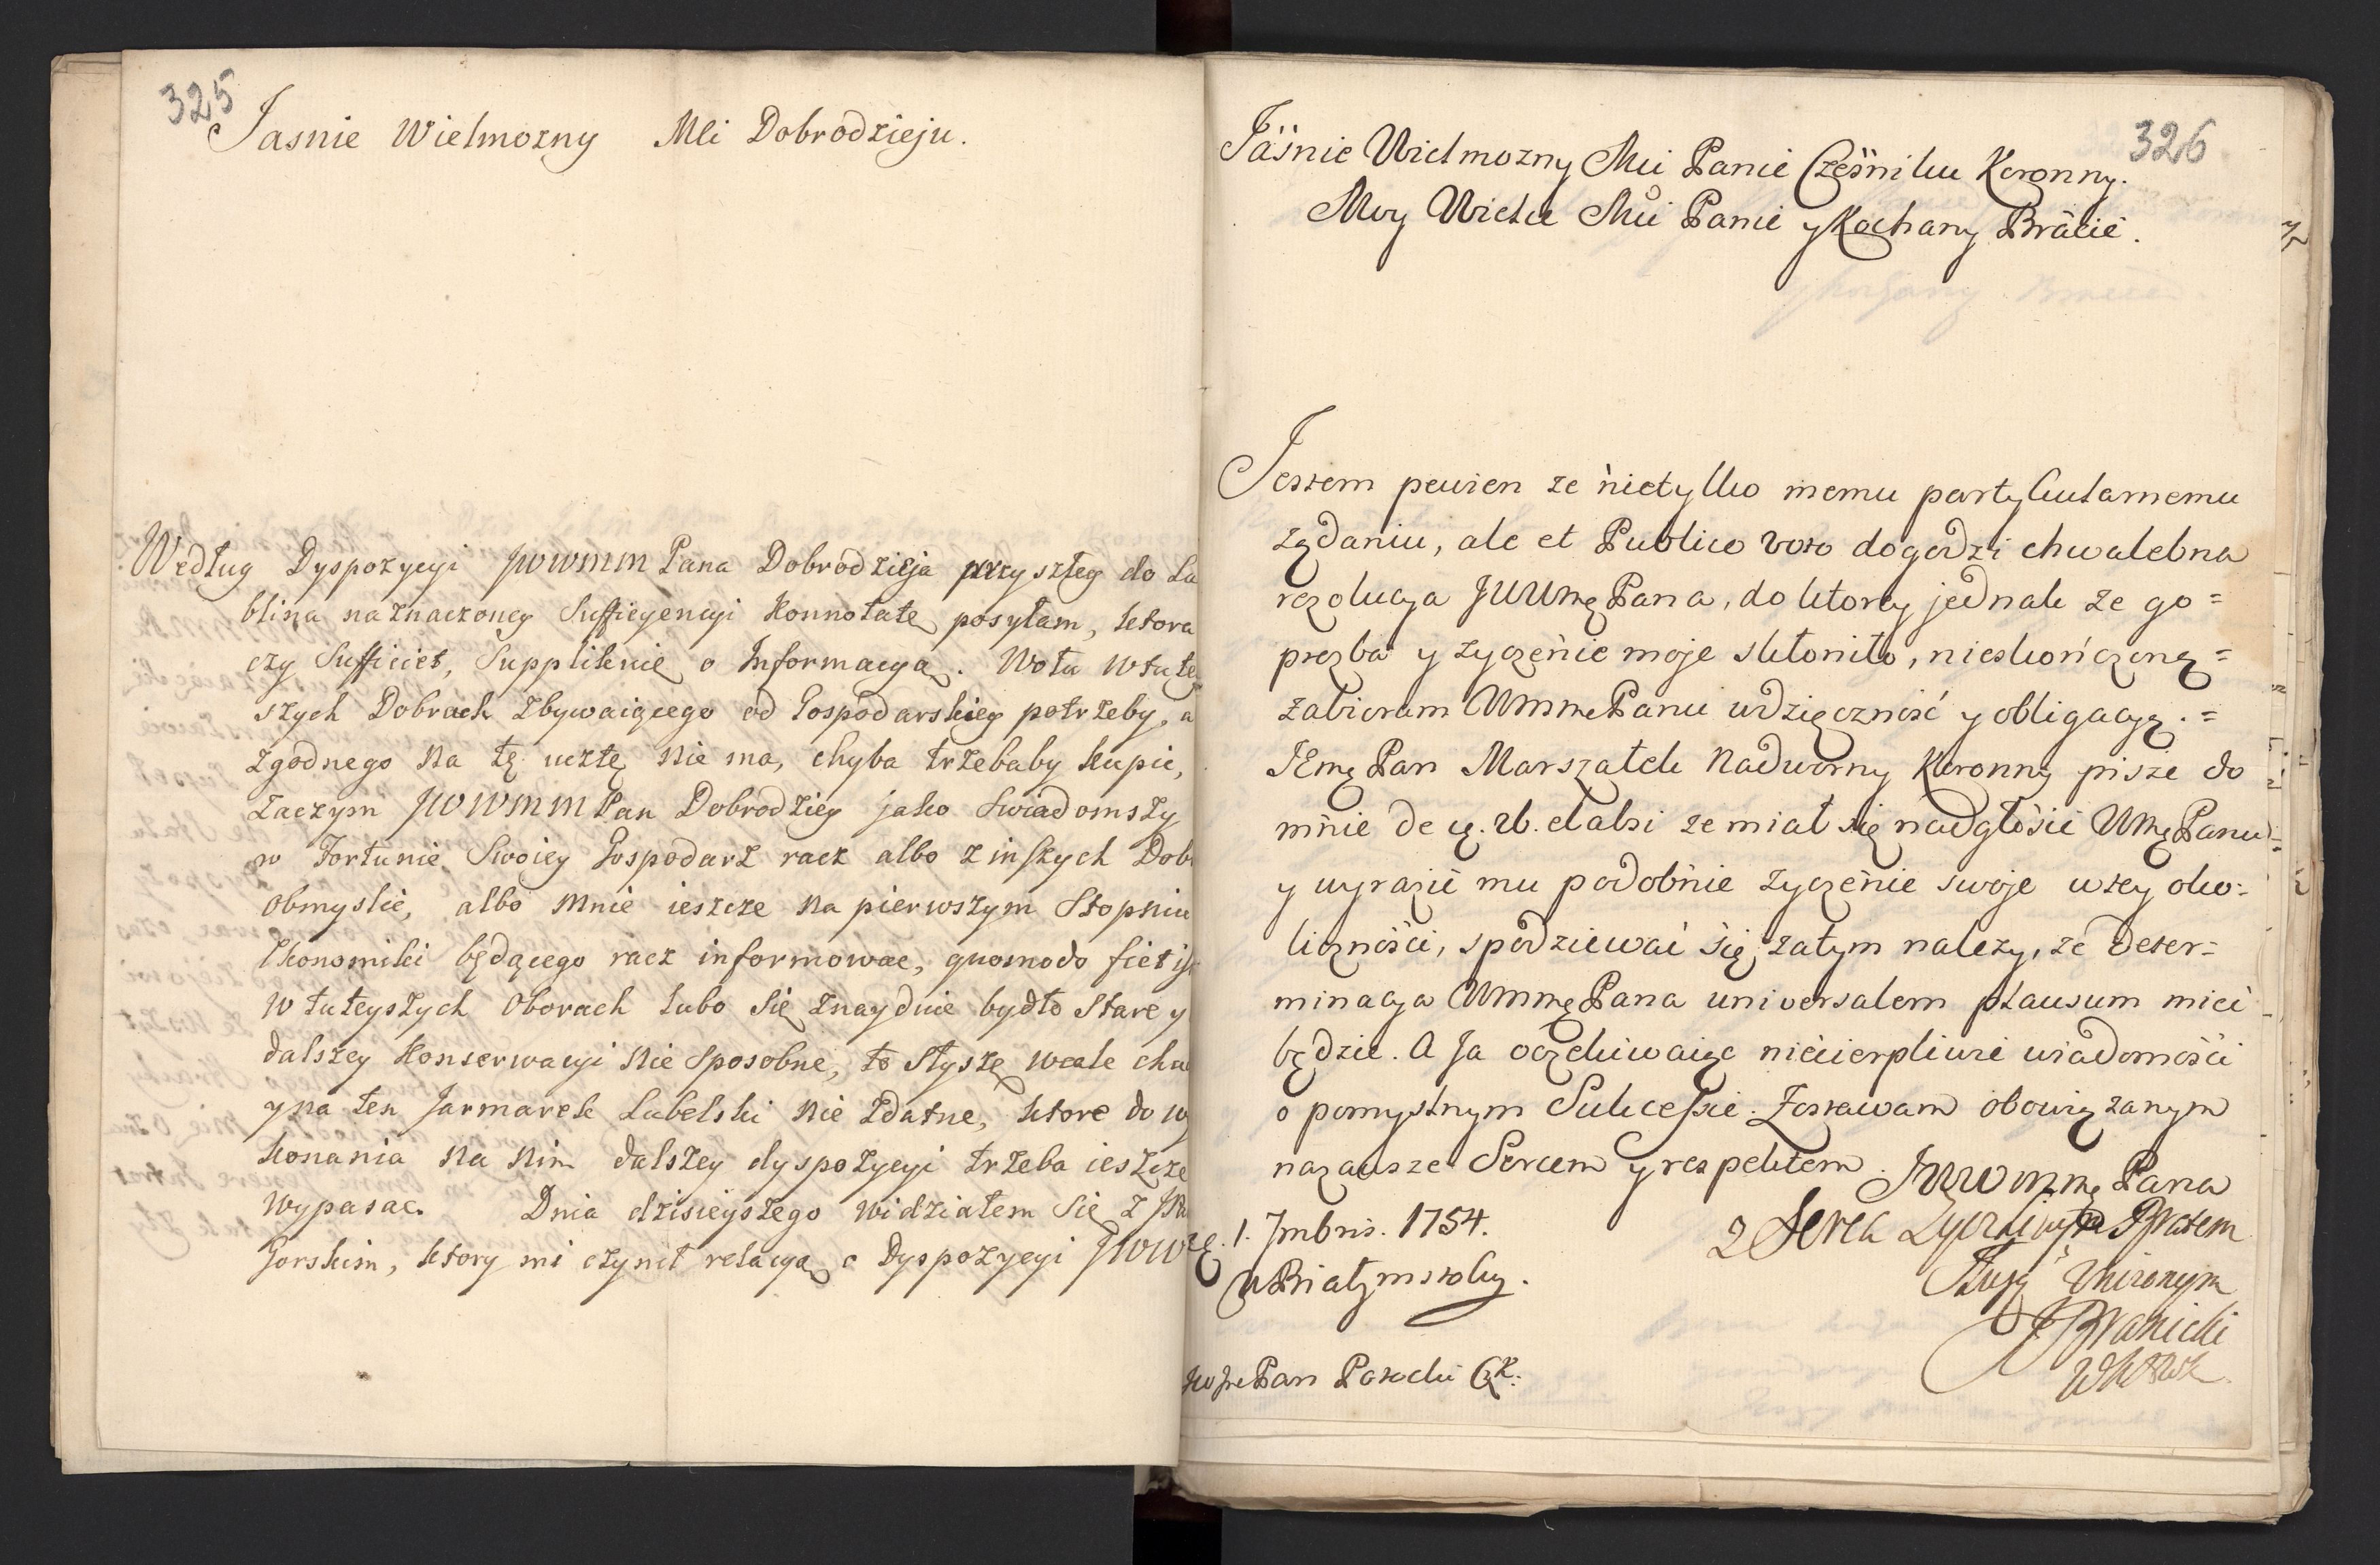 325
Jasnie Wielmozny Mci Dobrodzieju.
Według Dyspozycyi JWWMM Pana Dobrodzieja przyszłey do Lu
blina naznaczoney Sufficyencyi konnotatę posyłam, ktora
czy Sufficiet, Supplikuię o Informacyą. Wołu w tutey
szych Dobrach zbywaiącego od Gospodarskiey potrzeby, a
zgodnego na tę ucztę nie ma, chyba trzebaby kupic,
zaczym JWWMM Pan Dobrodziey jako Swiadomszy
w Fortunie Swoiey Gospodarz racz albo z inszych Dobr
obmyslic, albo mnie ieszcze na pierwszym Stopniu
Ekonomiki będącego racz informowac, quomodo fiet
w tuteyszych Oborach lubo Się znayduie bydło Stare y
dalszey konserwacyi nie Sposobne, to Słyszę wcale chu
y na ten Jarmarek Lubelski nie zdatne, ktore do wy
konania na nim dalszey dyspozycyi trzeba ieszcze
wypasac. Dnia dzisieyszego widziałem Się z
Gorskim, ktory mi czynił relacyą o Dyspozycyi JWW
326
Jaśnie Wielmozny Mci Panie Cześniku Koronny.
Moy Wielce Mci Panie y Kochany Bracie.
Jestem pewien ze nietylko memu partykularnemu
ządaniu, ale et Publico voto dogodzi chwalebna
rezolucya JWWMę Pana, do ktorey jednak ze go=
prozba y zyczenie moje skłoniło, nieskończoną=
zabieram WmmęPanu wdzięczność y obligacyą.=
JEmę Pan Marszałek Nadworny Koronny pisze do
mnie de 26. elabsi ze miał się nadgłosić WMęPanu=
y wyrazić mu podobnie zyczenie swoje w tey oko=
liczności, spodziewać się zatym nalezy, ze deter=
minacya WmmęPana universalem plausum mieć
będzie. A Ja oczekiwaiąc niecierpliwie wiadomości
o pomyslnym Sukcessie. Zostawam obowiązanym
nazawsze Sercem y respektem. JWWmmę Pana
1. Jmbris. 1754.
w Białymstoku.
z serca zyczliwym Bratem
sługą uniżonym
J Branicki
JWJmPan Potocki CzK: